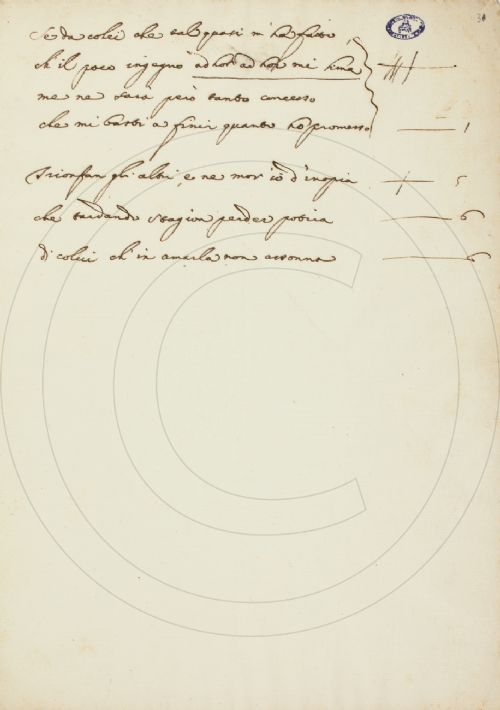 Se da colei che tal quasi m'ha fatto,
ch'il poco ingegno ad hor ad hor mi lima
me ne sarà però tanto concesso
che mi basti a finir quanto ho promesso 1
Trionfan gli altri, e ne mor iò d'inopia 5
che tardando stagion perder potria 6
di colei ch'in amarla non assonna 6